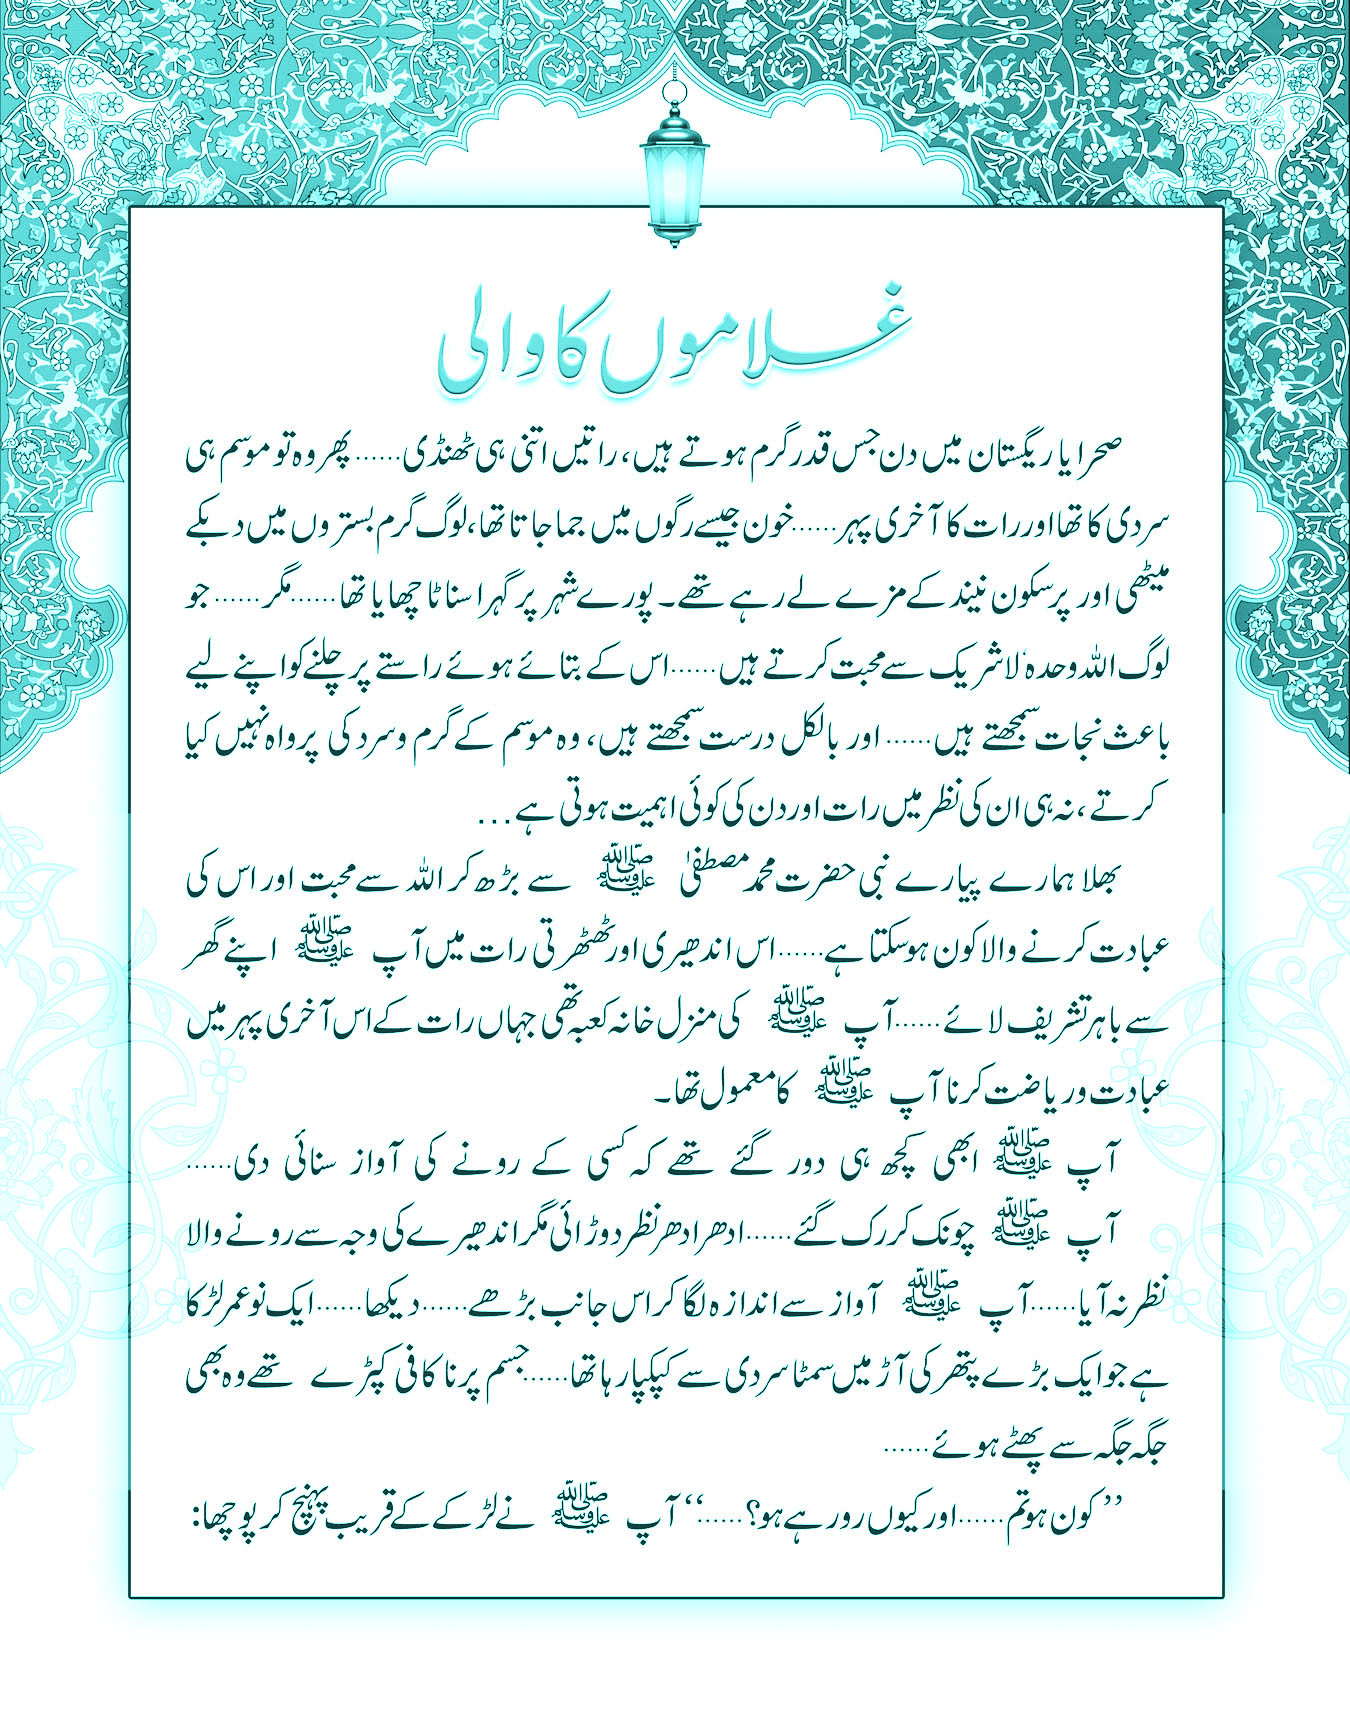 غلاموں کا والی
صحرا یا ریگستان میں دن جس قدر گرم ہوتے ہیں، راتیں اتنی ہی ٹھنڈی...... پھر وہ تو موسم ہی
سردی کا تھا اور رات کا آخری پہر......خون جیسے رگوں میں جما جاتا تھا، لوگ گرم بستروں میں دبکے
میٹھی اور پرسکون نیند کے مزے لے رہے تھے۔ پورے شہر پر گہرا سناٹا چھایا تھا......مگر...... جو
لوگ اللہ وحدہٗ لاشریک سے محبت کرتے ہیں......اس کے بتائے ہوئے راستے پر چلنے کو اپنے لیے
باعث نجات سمجھتے ہیں...... اور بالکل درست سمجھتے ہیں، وہ موسم کے گرم و سرد کی پرواہ نہیں کیا
کرتے، نہ ہی ان کی نظر میں رات اور دن کی کوئی اہمیت ہوتی ہے...
بھلا ہمارے پیارے نبی حضرت محمد مصطفیٰ ﷺ سے بڑھ کر اللہ سے محبت اور اس کی
عبادت کرنے والا کون ہوسکتا ہے......اس اندھیری اور ٹھٹھرتی رات میں آپ ﷺ اپنے گھر
سے باہر تشریف لائے......آپ ﷺ کی منزل خانہ کعبہ تھی جہاں رات کے اس آخری پہر میں
عبادت و ریاضت کرنا آپ ﷺ کا معمول تھا۔
آپ ﷺ ابھی کچھ ہی دور گئے تھے کہ کسی کے رونے کی آواز سنائی دی......
آپ ﷺ چونک کر رک گئے......ادھر ادھر نظر دوڑائی مگر اندھیرے کی وجہ سے رونے والا
نظر نہ آیا......آپ ﷺ آواز سے اندازہ لگا کر اس جانب بڑھے......دیکھا......ایک نوعمر لڑکا
ہے جو ایک بڑے پتھر کی آڑ میں سمٹا سردی سے کپکپا رہا تھا......جسم پر ناکافی کپڑے تھے وہ بھی
جگہ جگہ سے پھٹے ہوئے......
’’کون ہو تم......اور کیوں رو رہے ہو؟......‘‘ آپ ﷺ نے لڑکے کے قریب پہنچ کر پوچھا: